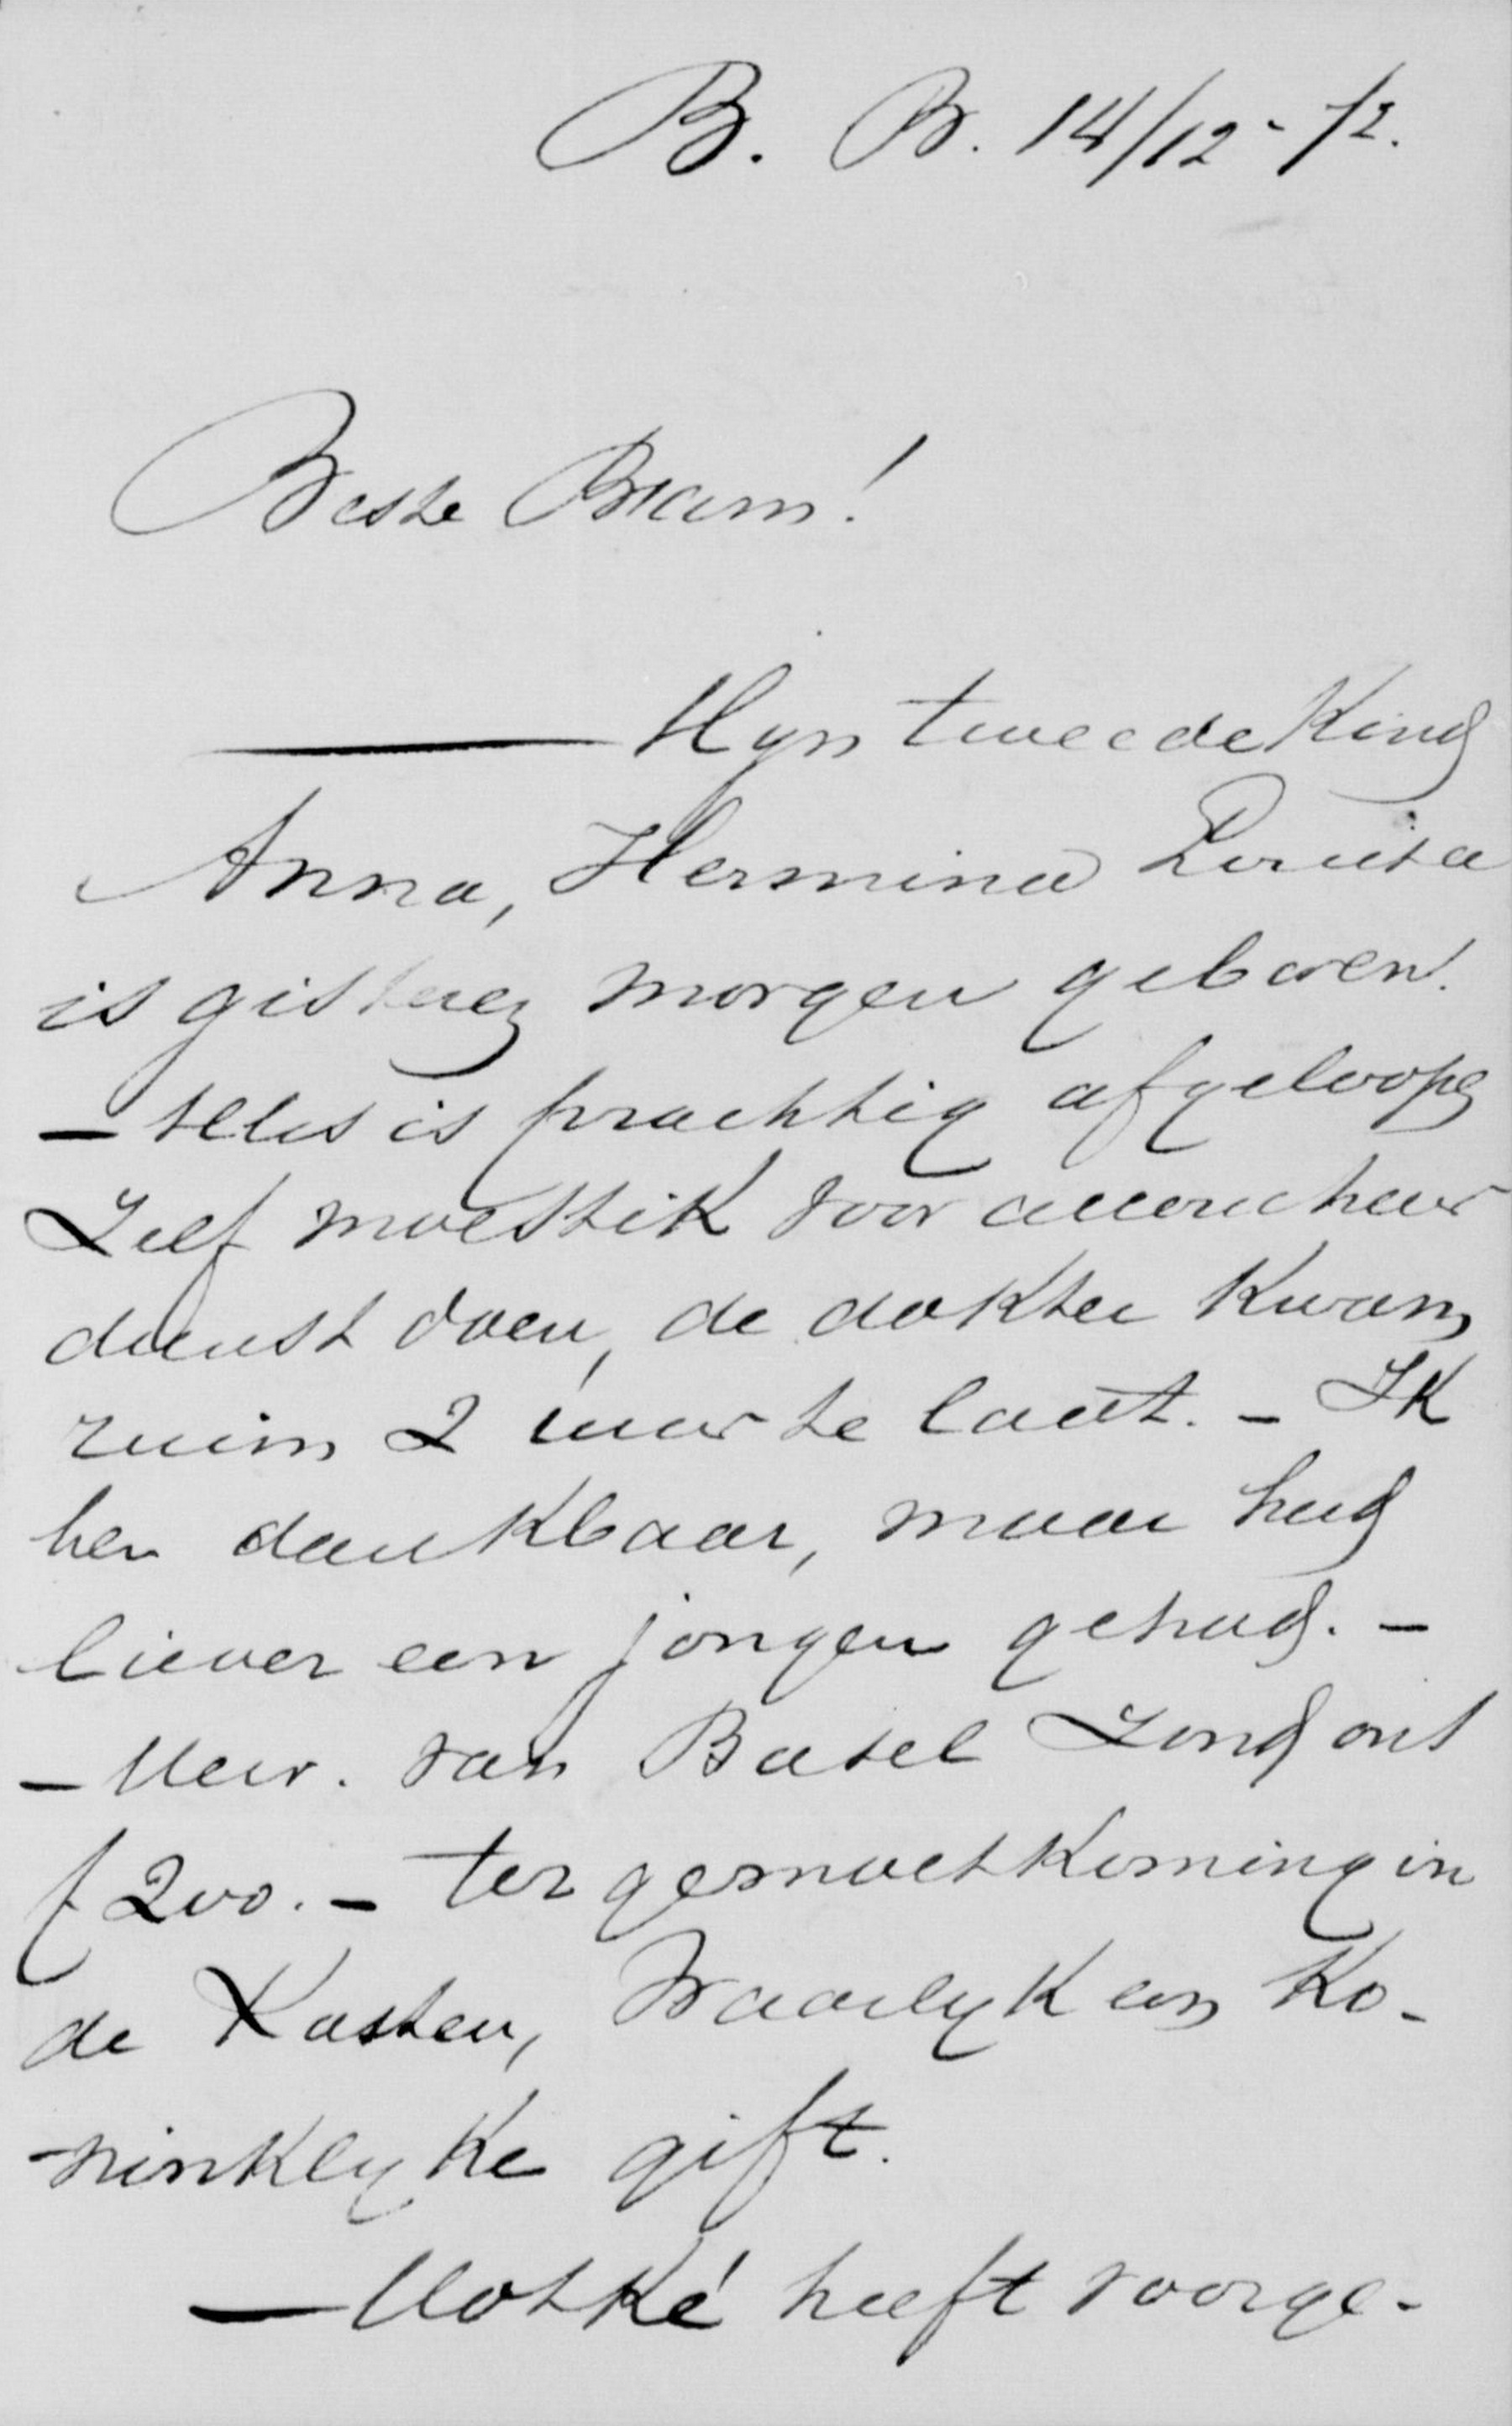 B. B. 14/12 - 72.
Beste Bram!
— Myn tweede Kind
Anna, Hermina Louisa
is gisteren morgen geboren.
— Alles is prachtig afgeloopen
Zelf moest ik voor accoucheur
dienst doen, de dokter kwam
ruim 2 uur te laat. - Ik
ben dankbaar, maar had
liever een jongen gehad. -
- Mevr. van Basel zond ons
f 200. - ter gemoetkoming in
de Kosten, Waarlyk een Ko-
ninklyke gift.
— Motké heeft voorge-